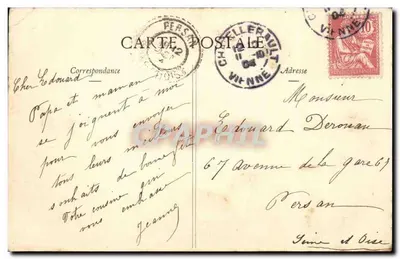 CARTE POSTALE
Correspondance
Adresse
PERSAN
CHATELLERAULT
VIENNE
Cher Edouard
Papa et maman
se joignent à moi
pour vous envoyer
tous leurs meilleurs
souhaits de bonne fête
Votre cousine qui
vous embrasse
Jeanne
Monsieur
Edouard Deronan
67 avenue de la gare 67
Persan
Seine et Oise
CPArama.com